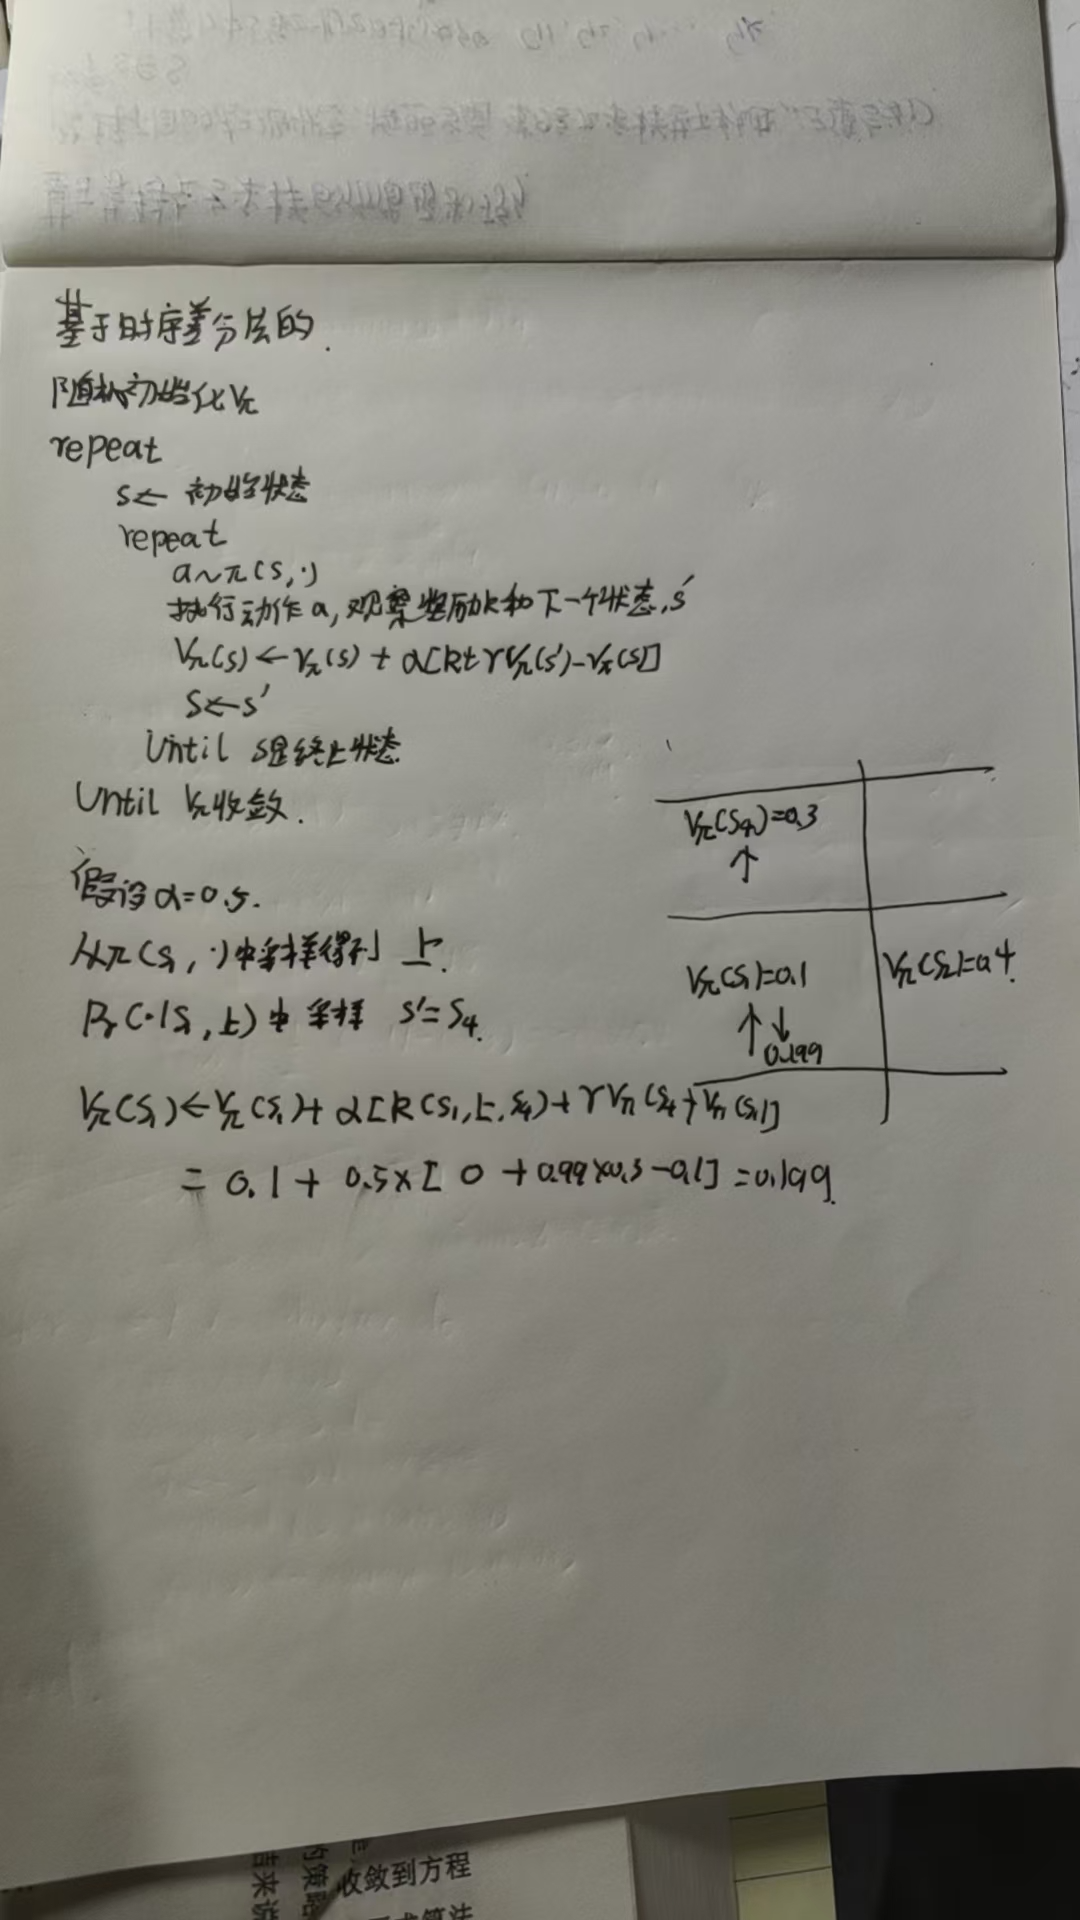 基于时序差分法的.
随机初始化Vπ
repeat
s← 初始状态
repeat
a~π(s,·)
执行动作a,观察奖励R和下一个状态s′
Vπ(s)←Vπ(s) + α[R+γVπ(s′)-Vπ(s)]
s←s′
Until s是终止状态
Until Vπ收敛.
Vπ(S4)=0.3
↑
假设α=0.5.
从π(S1,·)中采样得到 上.
Vπ(S1)=0.1
Vπ(S2)=0.4
↑↓
0.199
Pr(·|S1,上)中采样 s′=S4.
Vπ(S1)←Vπ(S1)+α[R(S1,上,S4)+γVπ(S4)-Vπ(S1)]
= 0.1 + 0.5×[ 0 +0.99×0.3-0.1] =0.199.
收敛到方程
的策略